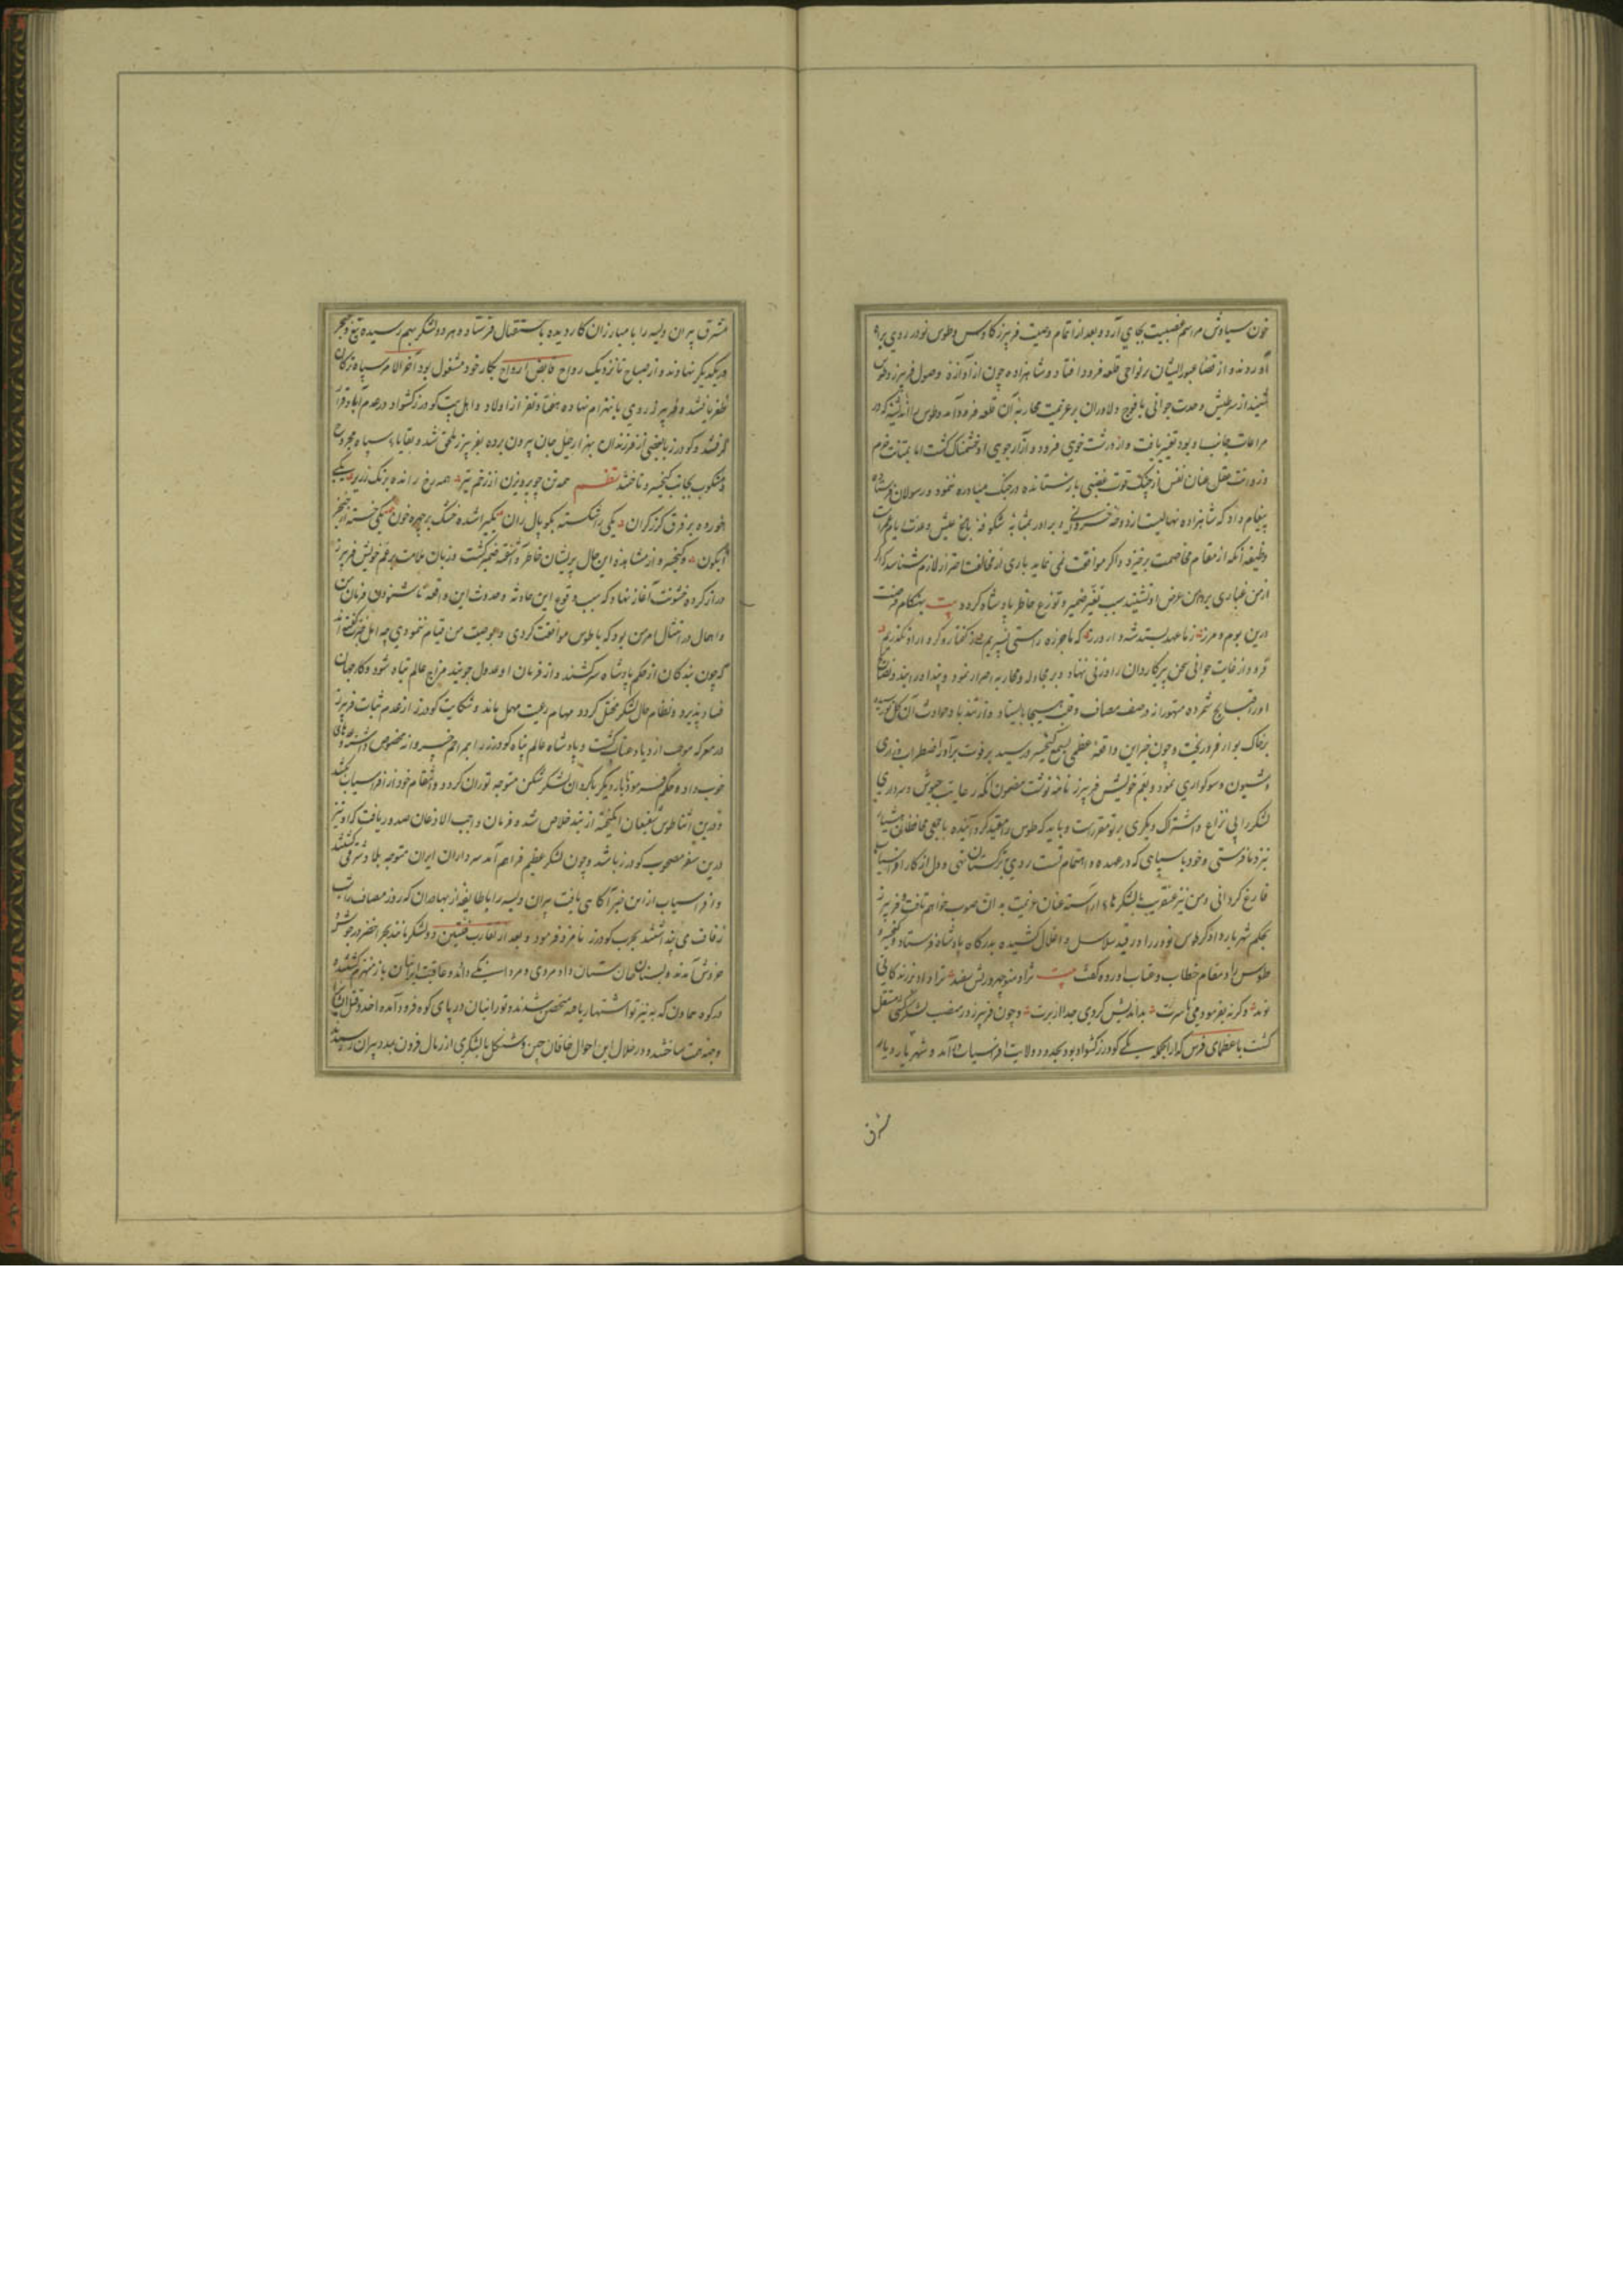 خون سیاوش مراسم عصبیت بجای آرد و بعد از اتمام وصیت فریبرز کاوس و طوس نوذر روی براه
آوردند و از قضا عبور ایشان بر نواحی قلعه فرود افتاد و شاهزاده چون از آوازه وصول فریبرز و طوس
شنید از سر طیش و حدت جوانی با فوج دلاوران بر عزیمت محاربه آن قلعه فرود آمد و طوس را اندیشه که در
مراعات جانب او بود تغییر یافت و از درشت خویی فرود و آزار جویی او خشمناک گشت اما بمتانت حزم
و رزانت عقل عنان نفس از چنگ قوت غضبی بازستانده در جنگ مبادره ننمود و رسولان فرستاده
پیغام داد که شاهزاده نهالیست از دوحه خسروانی و برادر بمثابه شکوفه باغ عیش و حدت با و ثمرات
وظیفه آنکه از مقام مخاصمت برخیزد و اگر موافقت نمی نماید باری از مخالفت احتراز لازم شناسد که اگر
از من غباری بر دامن عرض او نشیند سبب تغیر ضمیر و توزع خاطر پادشاه گردد بیت بهنگام رخصت
درین بوم و مرز ز ما عهد بستد شه دادورز که ما جز ره راستی نسپریم ز گفتار و کردار او نگذریم
فرود از غایت جوانی سخن پیر کاردان را وزنی ننهاد و بر مجادله و محاربه اصرار نمود و پند او را
او را قبایح شمرده متهورانه در صف مصاف وقت هیجا بایستاد و از تندباد حوادث آن گل نورسیده
بر خاک بوار فرو ریخت و چون خبر این واقعه عظمی بسمع کیخسرو رسید بر فوت برادر اضطراب و زاری
و شیون و سوگواری نمود و بعم خویش فریبرز نامه نوشت مضمون آنکه رعایت جیوش و سرداری
لشکر را بی نزاع و اشتراک دیگری بر تو مقررست و باید که طوس را مقید گردانیده با جمعی محافظان هشیار
نزد ما فرستی و خود با سپاهی که در عهده و اهتمام تست روی بترکستان نهی و دل از کار افراسیاب
فارغ گردانی و من نیز عنقریب با لشکرهای آراسته عنان عزیمت بدان صوب خواهم تافت و فریبرز
بحکم شهریار داد گر طوس نوذر را در قید سلاسل و اغلال کشیده بدرگاه پادشاه فرستاد و کیخسرو
طوس را در مقام خطاب و عتاب آورده گفت بیت نژاد منوچهر و ریش سفید ترا داد بر زندگانی
نوید وگرنه بفرمودمی تا سرت بداندیش کردی جدا از برت و چون فریبرز در منصب لشکرکشی مستقل
گشت با عظمای فرس که از انجمله یکی گودرز کشواد بود بحدود ولایت افراسیاب درآمد و شهریار دیار
شرق
مشرق پیران ویسه را با مبارزان کاردیده باستقبال فرستاده هر دو لشکر بهم رسیده تیغ و خنجر
در یکدیگر نهادند و از صباح تا نزدیک رواح قابض ارواح بکار خود مشغول بود آخر الامر سپاه ترکان
ظفر یافتند و فریبرز روی بانهزام نهاده هفتاد نفر از اولاد و اهل بیت گودرز کشواد در عدم آباد قرار
گرفتند و گودرز با بعضی از فرزندان بهزار حیل جان بیرون برده بفریبرز ملحق شد و بقایای سپاه مجروح
و منکوب بجانب کیخسرو تاختند نظم همه تن چو پرویزن از زخم تیر همه رخ رانده برنگ زریر یکی
خورده بر فرق گرز گران یکی را شکسته بکوپال ران یکی را شده خشک بر چهره خون یکی خسته از خنجر
آبگون و کیخسرو از مشاهده این حال پریشان خاطر و آشفته ضمیر گشت و زبان ملامت بر عم خویش فریبرز
دراز کرده خشونت آغاز نهاد که سبب وقوع این حادثه و حدوث این واقعه ناشنودن فرمان من
و اهمال در امتثال امر من بود که با طوس موافقت کردی و بموجب وصیت من قیام ننمودی چه اهل خرد گفته اند
که چون بندگان از حکم پادشاه سر کشند و از فرمان او عدول جویند مزاج عالم تباه شود و کار جهان
فساد پذیرد و نظام حال لشکر مختل گردد و مهام رعیت مهمل ماند و شکایت گودرز از عدم ثبات فریبرز
در معرکه موجب ازدیاد عتاب گشت و پادشاه عالم پناه گودرز را بمراحم خسروانه مخصوص داشته وعدهای
خوب داد و حکم فرمود تا بار دیگر با گردان لشکر شکن متوجه توران گردد و انتقام خود از افراسیاب بکشد
و درین اثنا طوس شفیعان انگیخته از بند خلاص شد و فرمان واجب الاذعان صدور یافت که او نیز
درین سفر مصحوب گودرز باشد و چون لشکر عظیم فراهم آمد سرداران ایران متوجه بلاد شرقی گشتند
و افراسیاب از این خبر آگاهی یافت پیران ویسه را با طایفه از بهادران که روز مصاف را شب
زفاف می پنداشتند بحرب گودرز نامزد فرمود و بعد از تقارب فئتین دو لشکر مانند بحر اخضر در جوش و
خروش آمدند و بسنان جان ستان داد مردی و مردانگی دادند و عاقبت ایرانیان باز منهزم گشتند
و بکوه حماون که به نیز تو اشتهار یافته متحصن شدند و تورانیان در پای کوه فرود آمده
وجهه همت ساختند و در خلال این احوال خاقان چین و شنکل با لشکری از رمال فزون بمدد پیران رسیدند